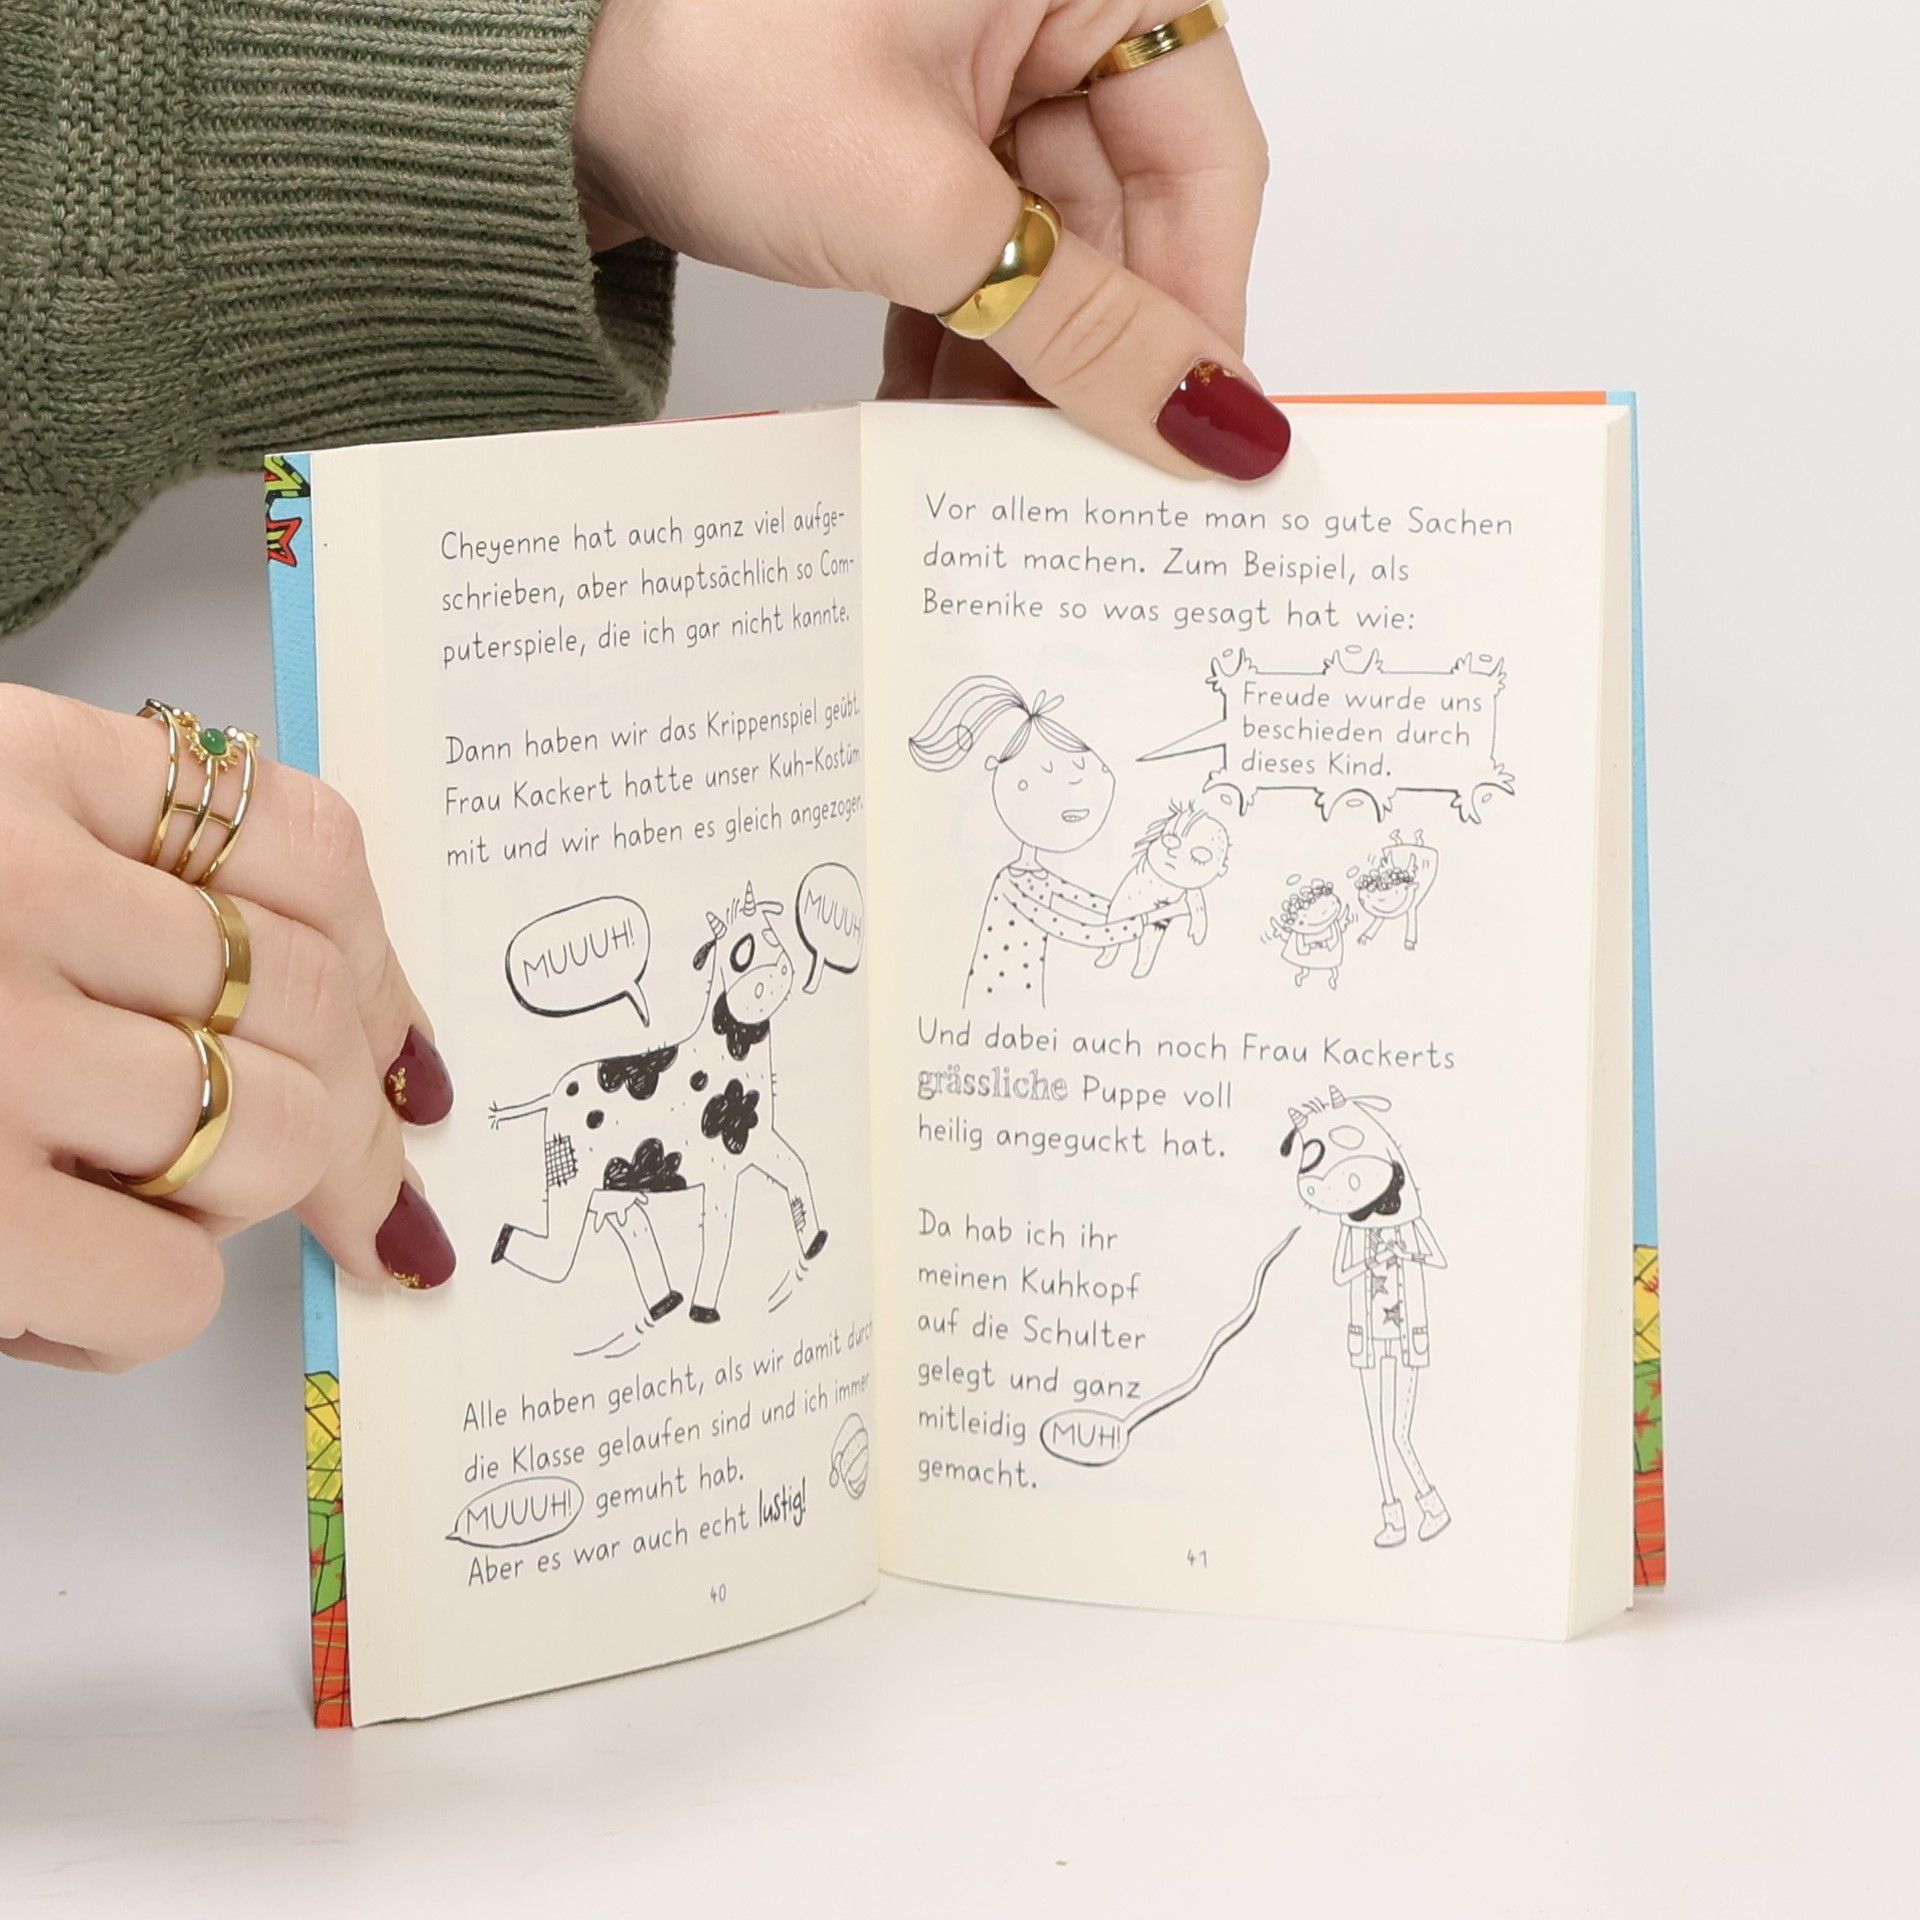 Cheyenne hat auch ganz viel aufge-
schrieben, aber hauptsächlich so Com-
puterspiele, die ich gar nicht kannte.
Dann haben wir das Krippenspiel geübt.
Frau Kackert hatte unser Kuh-Kostüm
mit und wir haben es gleich angezogen.
MUUUH!
MUUUH
Alle haben gelacht, als wir damit durch
die Klasse gelaufen sind und ich immer
MUUUH! gemuht hab.
Aber es war auch echt lustig!
40
Vor allem konnte man so gute Sachen
damit machen. Zum Beispiel, als
Berenike so was gesagt hat wie:
Freude wurde uns
beschieden durch
dieses Kind.
Und dabei auch noch Frau Kackerts
grässliche Puppe voll
heilig angeguckt hat.
Da hab ich ihr
meinen Kuhkopf
auf die Schulter
gelegt und ganz
mitleidig MUH!
gemacht.
41